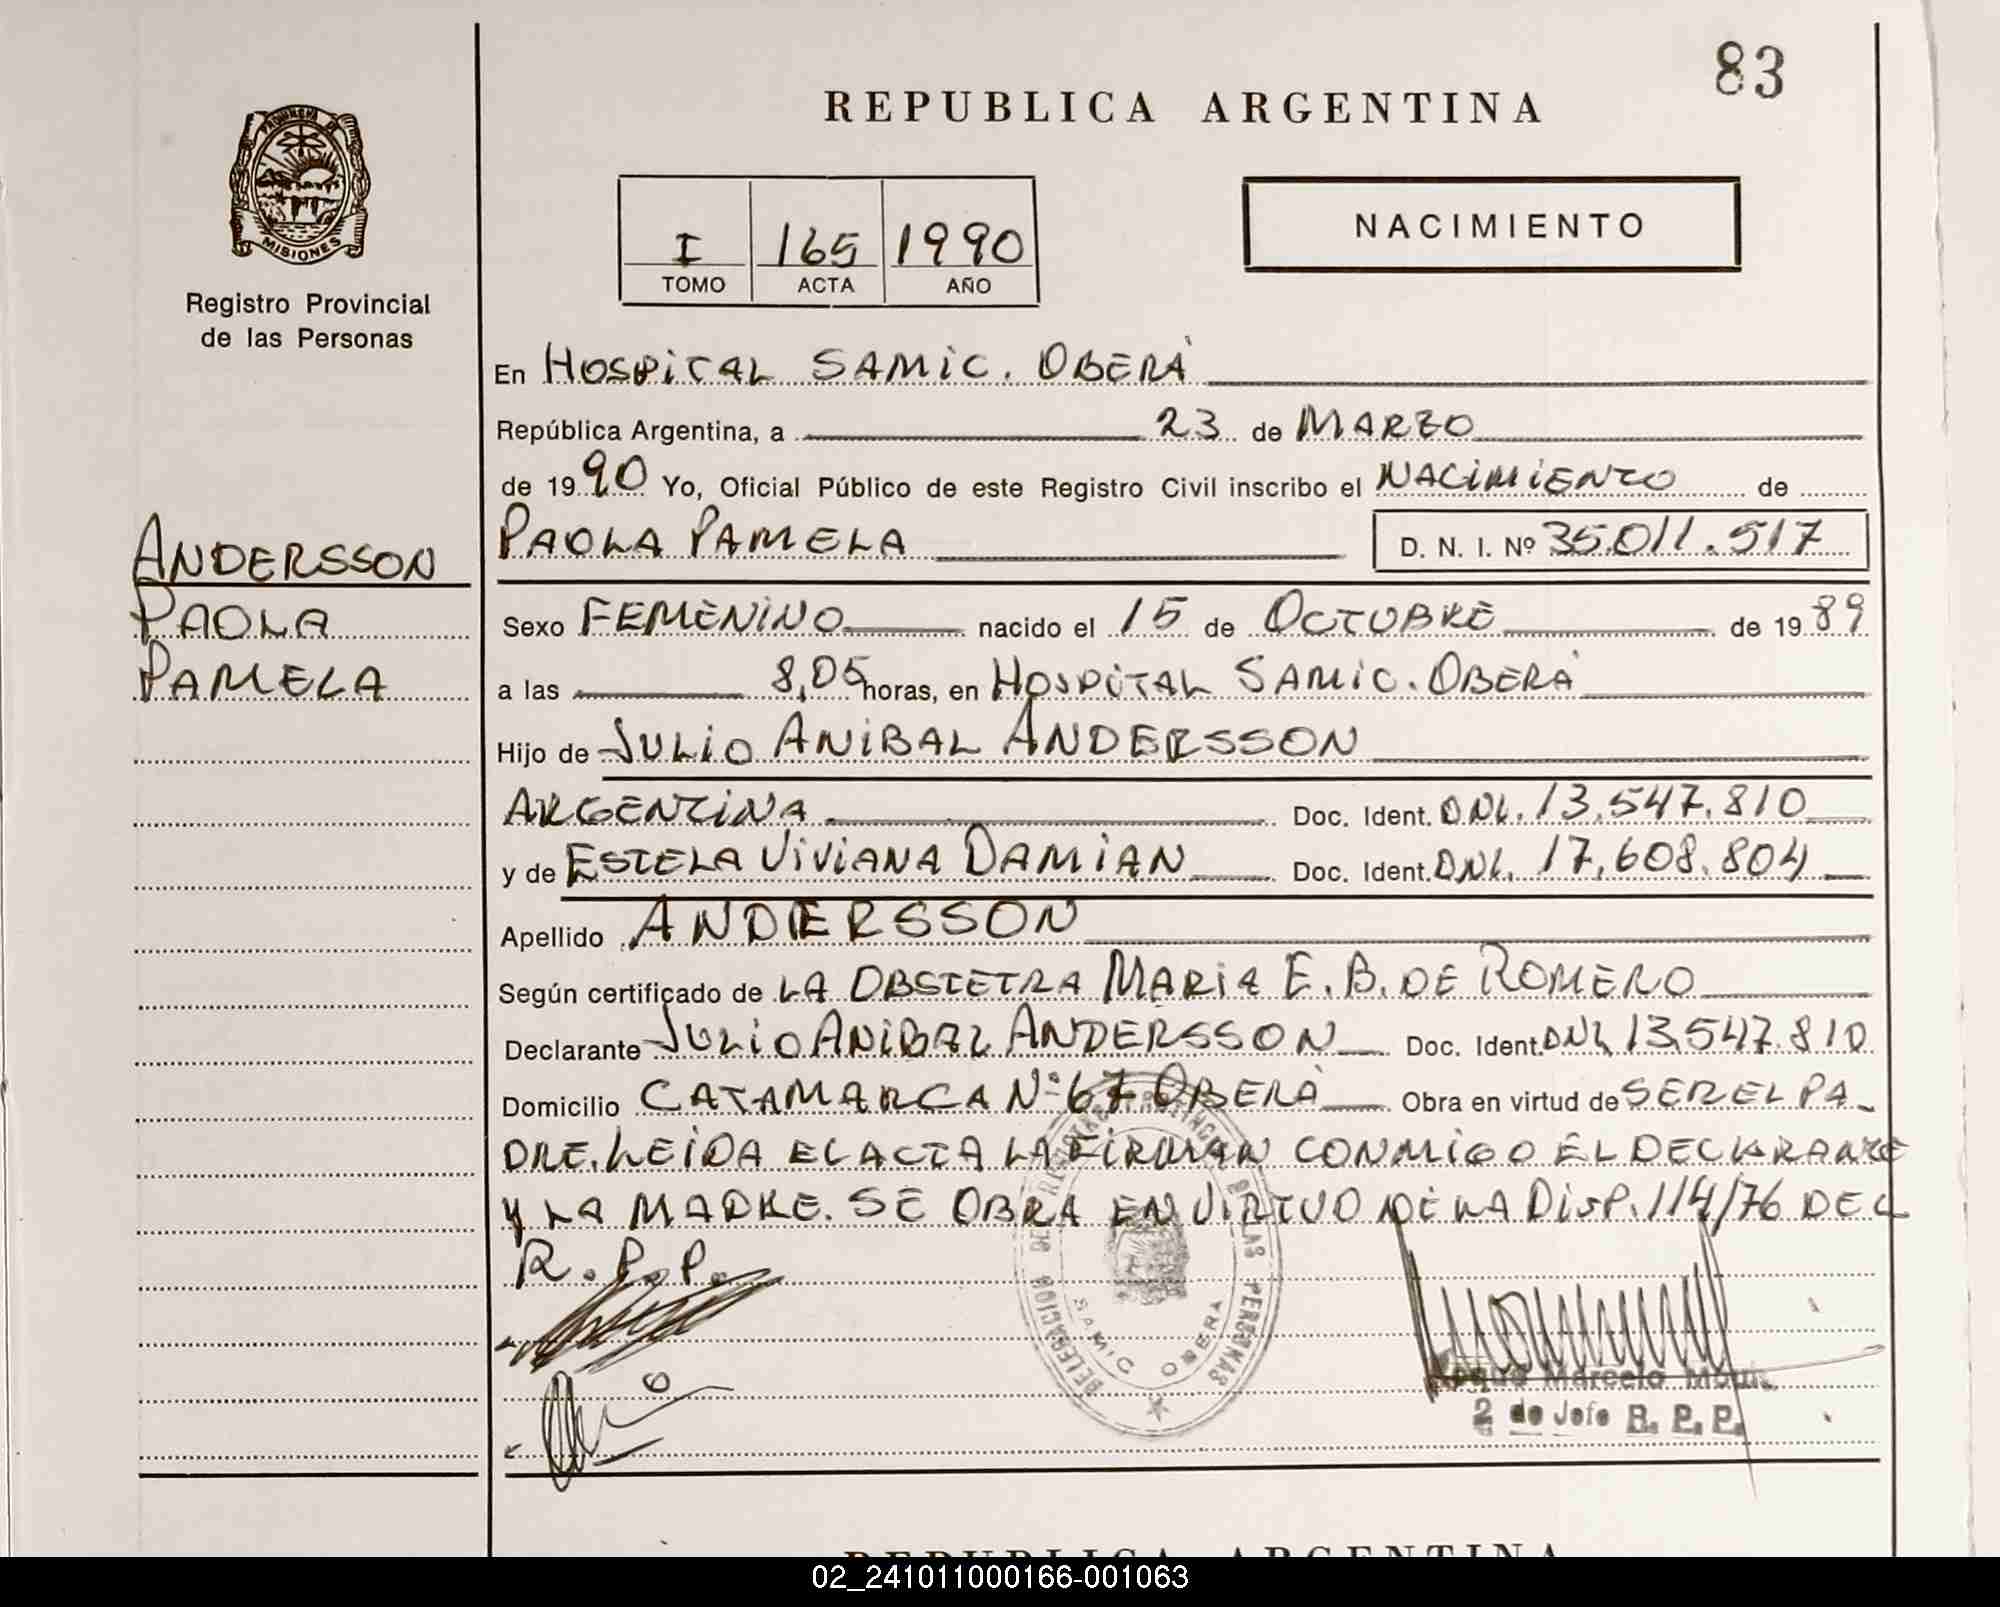 83
REPUBLICA ARGENTINA
PROVINCIA DE
MISIONES
Registro Provincial
de las Personas
I 165 1990
TOMO ACTA AÑO
NACIMIENTO
En HOSPITAL SAMIC. OBERÁ
República Argentina, a 23 de MARZO
de 1990 Yo, Oficial Público de este Registro Civil inscribo el NACIMIENTO de
PAOLA PAMELA D. N. I. Nº 35.011.517
ANDERSSON
PAOLA
PAMELA
Sexo FEMENINO nacido el 15 de OCTUBRE de 1989
a las 8,05 horas, en HOSPITAL SAMIC. OBERÁ
Hijo de JULIO ANIBAL ANDERSSON
ARGENTINA Doc. Ident. DNI. 13.547.810
y de ESTELA VIVIANA DAMIAN Doc. Ident. DNI. 17.608.804
Apellido ANDERSSON
Según certificado de LA OBSTETRA MARIA E. B. DE ROMERO
Declarante JULIO ANIBAL ANDERSSON Doc. Ident. DNI. 13.547.810
Domicilio CATAMARCA Nº 67 OBERÁ Obra en virtud de SER EL PA-
DRE. LEIDA EL ACTA LA FIRMAN CONMIGO EL DECLARANTE
Y LA MADRE. SE OBRA EN VIRTUD DE LA DISP. 114/76 DEL
R. P. P.
DELEGACION DE REGISTRO PROVINCIAL DE LAS PERSONAS
SAMIC OBERA
Roque Marcelo
2 do Jefe R. P. P.
REPUBLICA ARGENTINA
02_241011000166-001063